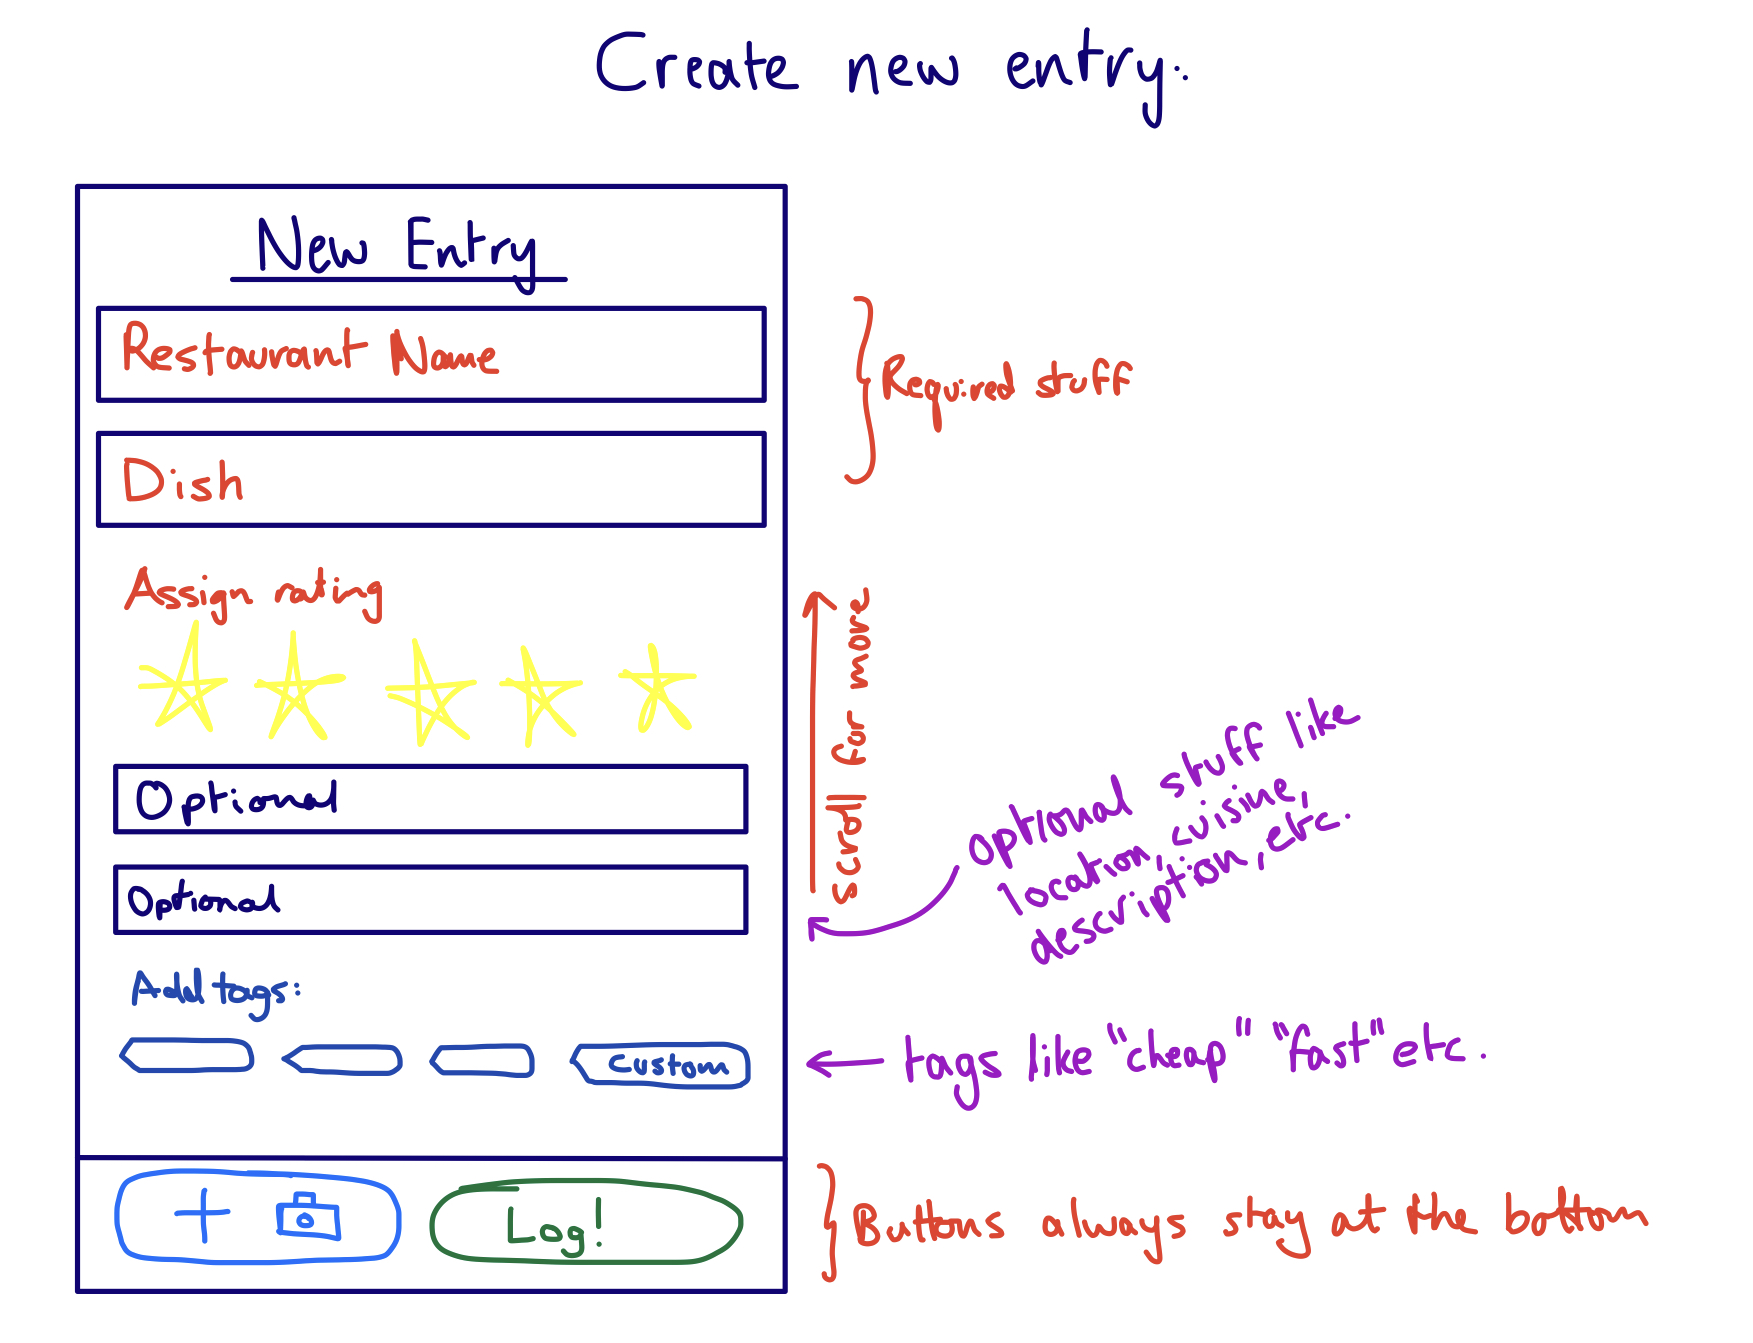 Create new entry:
New Entry
Restaurant Name
Dish
Required stuff
Assign rating
scroll for more
Optional
Optional
optional stuff like
location, cuisine,
description, etc.
Add tags:
custom
tags like "cheap" "fast" etc.
+
Log!
Buttons always stay at the bottom